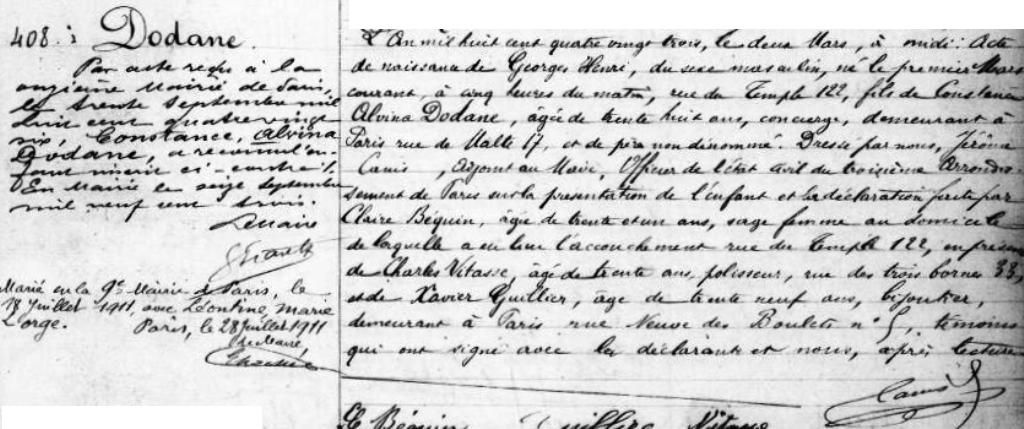 408: Dodane.
Par acte reçu à la
onzième Mairie de Paris,
le trente Septembre mil
huit cent quatre vingt
six, Constance, Alvina
Dodane, a reconnu l'en-
fant inscrit ci-contre /.
En Mairie le seize Septembre
mil neuf cent trois.
Le Maire
Marié en la 9e Mairie de Paris, le
18 Juillet 1911, avec Léontine, Marie
Lorge. Paris, le 28 Juillet 1911
Le Maire
L'An mil huit cent quatre vingt trois, le deux Mars, à midi: Acte
de naissance de Georges Henri, du sexe masculin, né le premier Mars
courant, à cinq heures du matin, rue du Temple 122, fils de Constance
Alvina Dodane, âgée de trente huit ans, concierge, demeurant à
Paris rue de Malte 17, et de père non dénommé. Dressé par nous, Jérôme
Camis, adjoint au Maire, Officier de l'état civil du troisième Arrondis-
sement de Paris sur la présentation de l'enfant et la déclaration faite par
Claire Béquin, âgée de trente et un ans, sage femme au domicile
de laquelle a eu lieu l'accouchement rue du Temple 122, en présence
de Charles Vitasse, âgé de trente ans, polisseur, rue des trois bornes 33,
et de Xavier Guillier, âgé de trente neuf ans, bijoutier,
demeurant à Paris rue Neuve des Boulets n° 5, témoins
qui ont signé avec la déclarante et nous, après lecture
Camis
Béquin Vitasse